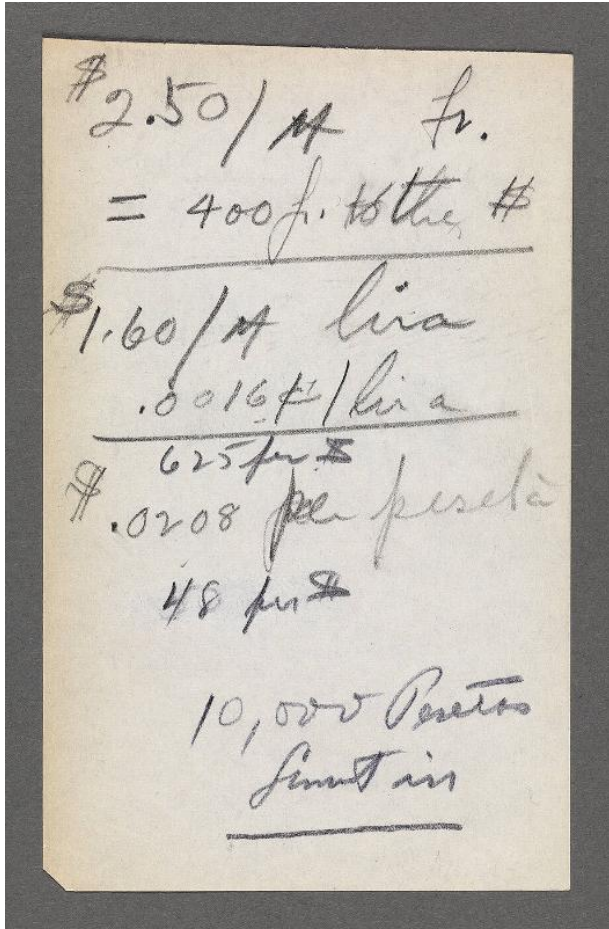 $2.50/M fr.
= 400 fr. to the $
$1.60/M lira
.0016 ¢/lira
625 per $
$.0208 per peseta
48 per $
10,000 Pesetas
limit in